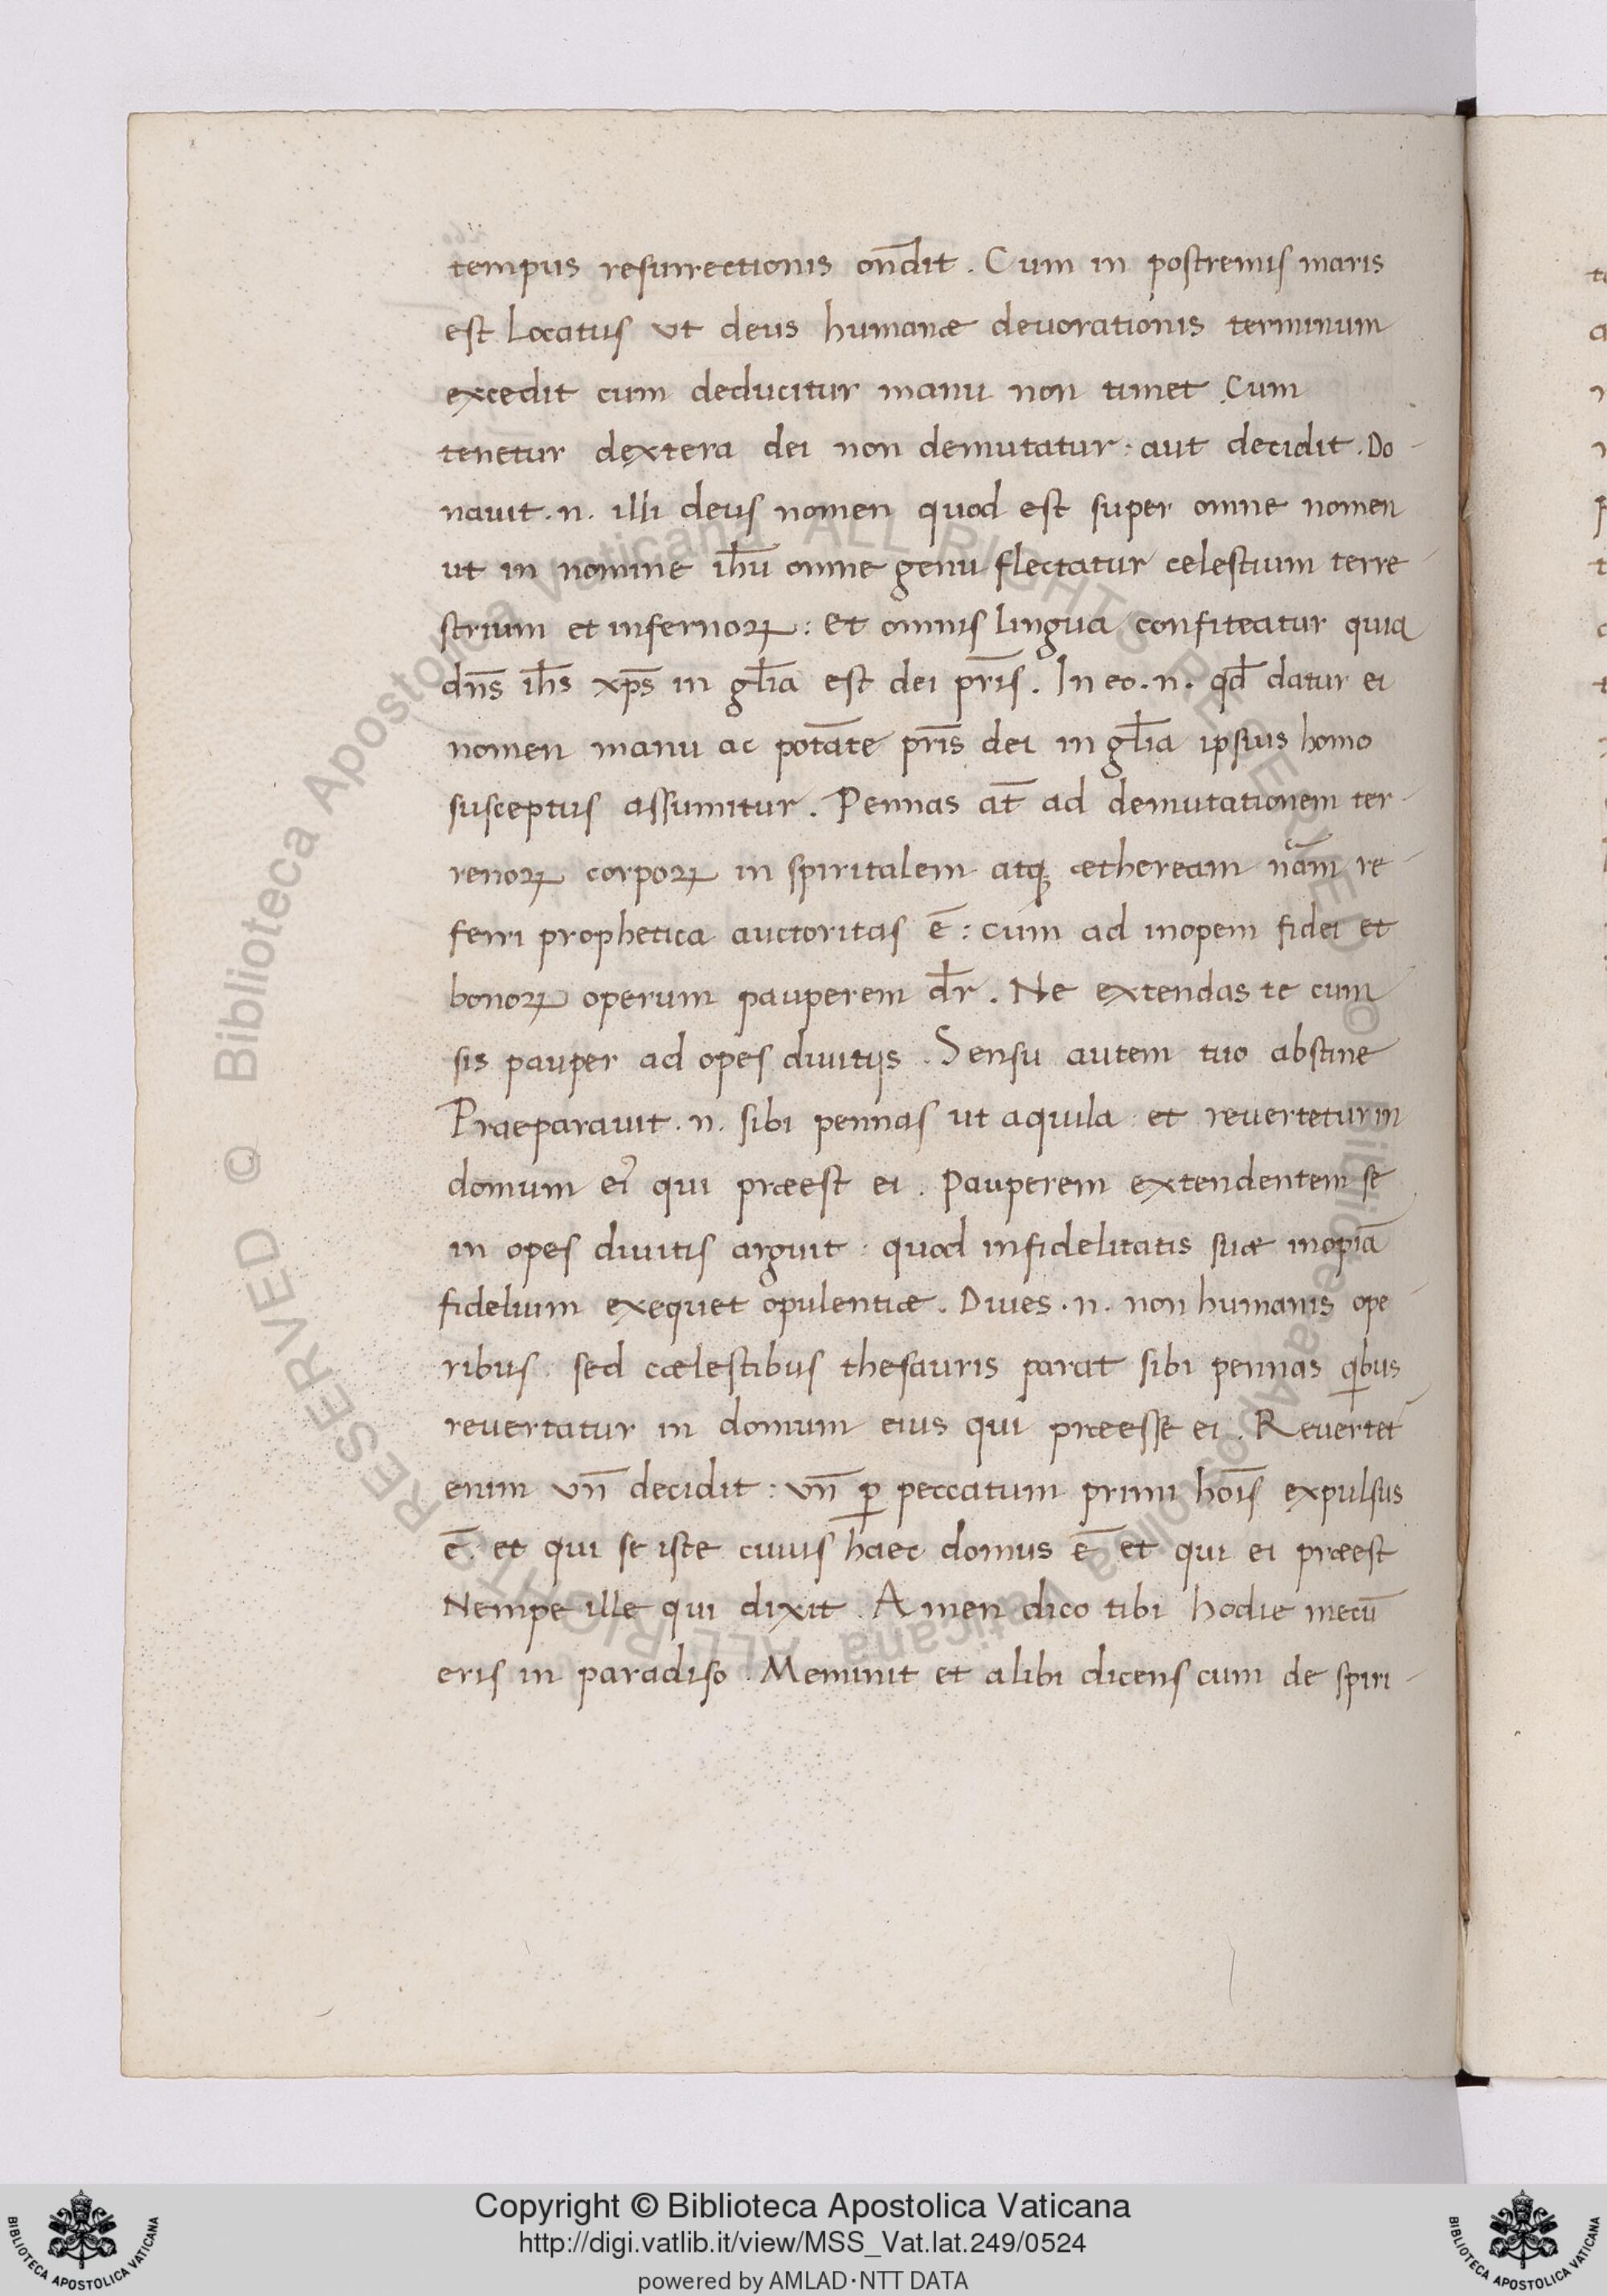 tempus resurrectionis on̄dit . Cum in postremis maris
est Locatus ut deus humanæ deuorationis terminum
excedit cum deducitur manu non timet Cum
tenetur dextera dei non demutatur : aut decidit . Do-
nauit . n . illi deus nomen quod est super omne nomen
ut in nomine ih̄u omne genu flectatur celestium terre-
strium et infernoꝝ : Et omnis lingua confiteatur quia
dn̄s ih̄s xp̄s in gl̄ia est dei pr̄is . In eo . n . qd̄ datur ei
nomen manu ac potāte pr̄is dei in gl̄ia ipsius homo
susceptus assumitur . Pennas at̄ ad demutationem ter-
renoꝝ corpoꝝ in spiritalem atqꝫ ætheream nām re-
ferri prophetica auctoritas ē : cum ad inopem fidei et
bonoꝝ operum pauperem dr̄ . Ne extendas te cum
sis pauper ad opes diuitijs . Sensu autem tuo abstine
Praeparauit . n . sibi pennas ut aquila et reuertetur in
domum ei᾿ qui præest ei . Pauperem extendentem se
in opes diuitis arguit : quod infidelitatis suæ inopiā
fidelium exequet opulentiæ . Diues . n . non humanis ope-
ribus . sed cælestibus thesauris parat sibi pennas qⁱbus
reuertatur in domum eius qui præesse ei . Reuertet᾿
enim un̄ decidit : un̄ ꝑ peccatum primi hoīs expulsus
ē . et qui se iste cuius haec domus ē et qui ei præest
Nempe ille qui dixit . Amen dico tibi hodie mecū
eris in paradiso . Meminit et alibi dicens cum de spiri-
© Biblioteca Apostolica Vaticana ALL RIGHTS RESERVED © Biblioteca Apostolica Vaticana ALL RIGHTS RESERVED
Copyright © Biblioteca Apostolica Vaticana
http://digi.vatlib.it/view/MSS_Vat.lat.249/0524
powered by AMLAD·NTT DATA
BIBLIOTECA APOSTOLICA VATICANA
BIBLIOTECA APOSTOLICA VATICANA